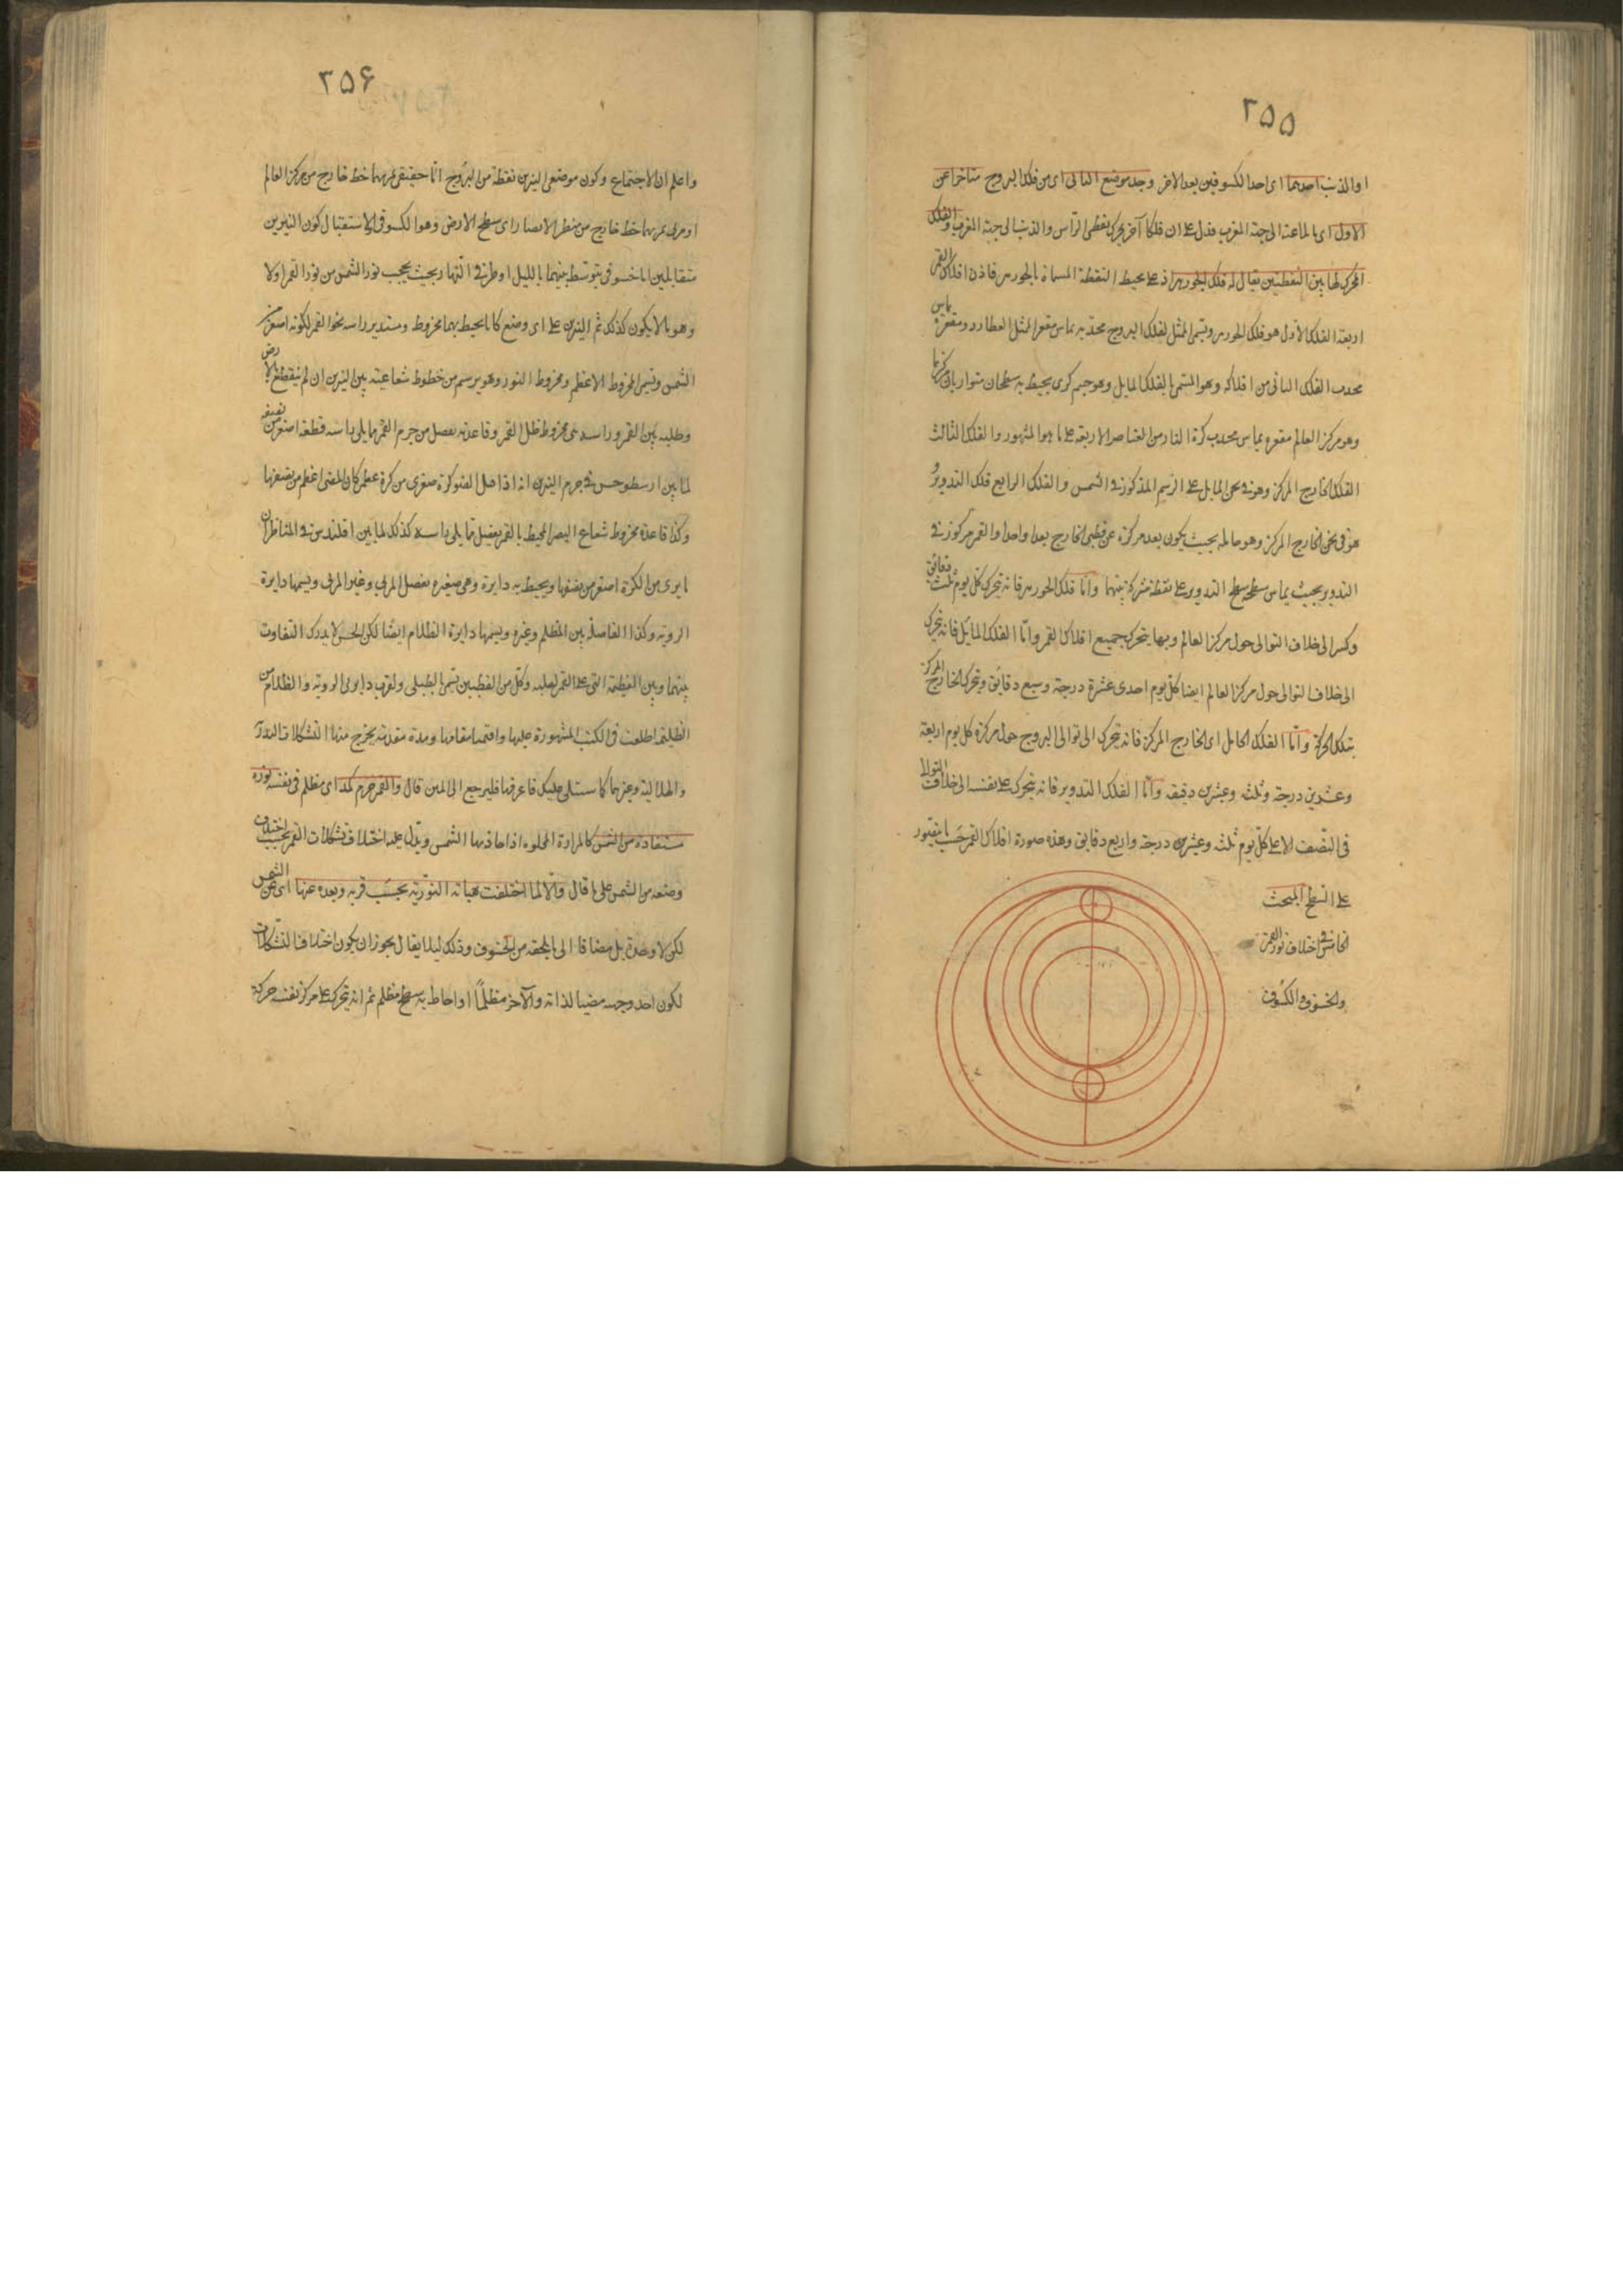 ٣٥٥
او الذنب احدهما اى احد الكسوفين بعد الاخر وجد موضع الثانى اى من فلك البروج متاخرا عن
الاول اى بالماعنه الى جهة المغرب فدل على ان فلكا آخر يحرك نقطتى الراس والذنب الى جهة المغرب والفلك
المحرك لهاتين النقطتين يقال له فلك الجوزهر اذ على محيطه النقطة المسماة بالجوزهر فاذن افلاك القمر
اربعة الفلك الاول هو فلك الجوزهر ويسمى الممثل بفلك البروج محدبه يماس مقعر الممثل العطارد ومقعره يماس
محدب الفلك الثانى من افلاكه وهو المسمى بالفلك المايل وهو جرم كرى يحيط به سطحان متوازيان مركزهما
وهو مركز العالم مقعره يماس محدب كرة النار من العناصر الاربعة على ما هو المشهور والفلك الثالث
الفلك الخارج المركز وهو فى ثخن المايل على الرسم المذكور فى الشمس والفلك الرابع فلك التدوير و
هو فى ثخن الخارج المركز وهو حامله بحيث يكون بعد مركزه عن قطبى الخارج بعدا واحدا والقمر مركوز فى
التدوير بحيث يماس سطحه سطح التدوير على نقطة مشتركة بينهما واما فلك الجوزهر فانه يتحرك كل يوم ثلث دقائق
وكسر الى خلاف التوالى حول مركز العالم وبها يتحرك جميع افلاك القمر واما الفلك المائل فانه يتحرك
الى خلاف التوالى حول مركز العالم ايضا كل يوم احدى عشرة درجة وسبع دقايق ويتحرك الخارج المركز
بتلك الحركة واما الفلك الحامل اى الخارج المركز فانه يتحرك الى توالى البروج حول مركزه كل يوم اربعة
وعشرين درجة وثلثه وعشرين دقيقه واما الفلك التدوير فانه يتحرك على نفسه الى خلاف التوالى
فى النصف الاعلى كل يوم ثلثه وعشرين درجة واربع دقايق وهذه صورة افلاك القمر حسب ما يتصور
على السطح المبحث
الخامس فى اختلاف نور القمر
والخسوف والكسوف
٣٥۶
واعلم ان الاجتماع وكون موضعى النيرين نقطة من البروج اما حقيقى يمر بهما خط خارج من مركز العالم
او مرئى يمر بهما خط خارج من منظر الابصار اى سطح الارض وهو الكسوفى والاستقبال كون النيرين
متقابلين اما خسوفى بتوسط بينهما بالليل او طرفى النهار بحيث يحجب نور الشمس من نور القمر اولا
وهو ما لا يكون كذلك ثم النيرين على اى وضع كانا يحيط بهما مخروط ومستدير راسه نحو القمر لكونه اصغر من
الشمس ويسمى المخروط الاعظم ومخروط النور وهو يرسم من خطوط شعاعية بين النيرين ان لم ينقطع بالارض
وظلمه بين القمر وراسه هى مخروط ظل القمر وقاعدته تفصل من جرم القمر مما يلى راسه قطعة اصغر من نصفه
لما بين ارسطوخس فى جرم النيرين انه اذا قبل الضو كرة صغرى من كرة عظمى كان المضئ اعظم من نصفها
وكذا قاعدة مخروط شعاع البصر المحيط بالقمر يفصل مما يلى راسه كذلك لما بين اقليدس فى المناظر ان
ما يرى من الكرة اصغر من نصفها ويحيط به دايرة وهى صغيره تفصل المرئى وغير المرئى ويسمها دايرة
الروية وكذا الفاصلة بين المظلم وغيره ويسمها دايرة الظلام ايضا لكن الحس لا يدرك التفاوت
بينهما وبين العظيمة التى على القمر
اطلعت فى الكتب المشهورة عليها واقمنا مقامها ومدة مقدمة يخرج منها التشكلات البدرية
والهلالية وغيرهما كما ستتلى عليك فاعرفها فليرجع الى المتن قال والقمر جرم كمد اى مظلم فى نفسه نوره
مستفادة من الشمس كالمراة المجلوه اذا حاذتها الشمس ويدل عليه اختلاف تشكلات القمر بحسب اختلاف
وضعه من الشمس على ما قال والا لما اختلفت هياته النورية بحسب قربه وبعده عنها اى عن الشمس
لكن لا وحده بل مضافا الى ما يلحقه من الخسوف وذلك ليلا يقال يجوز ان يكون اختلاف التشكلات
لكون احد وجهيه مضيا لذاته والاخر مظلما او احاط به سطح مظلم ثم انه يتحرك على مركز نفسه حركة